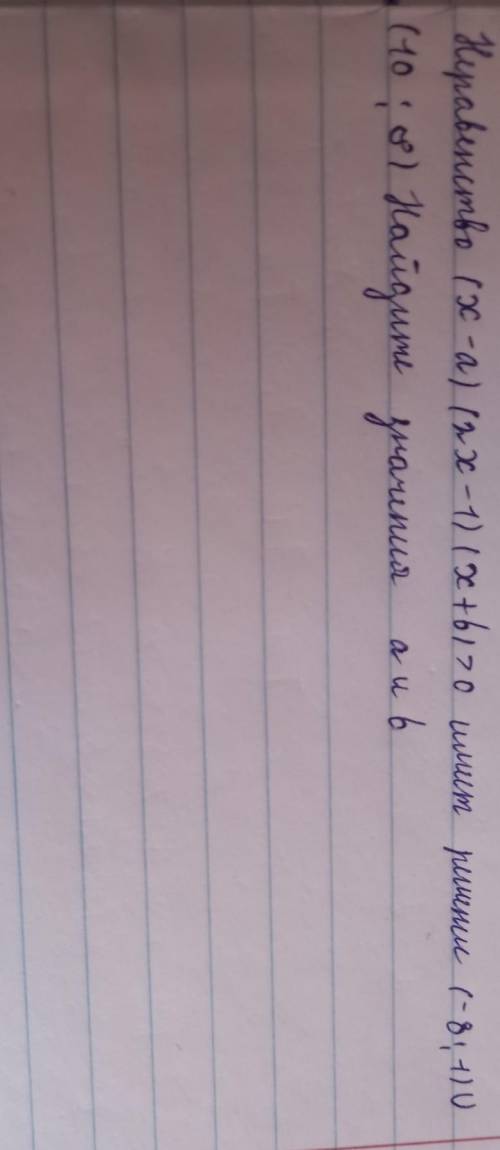 Неравенство (x-a)(2x-1)(x+b)>0 имеет решение (-8;1)∪
(10;∞) Найдите значения a и b